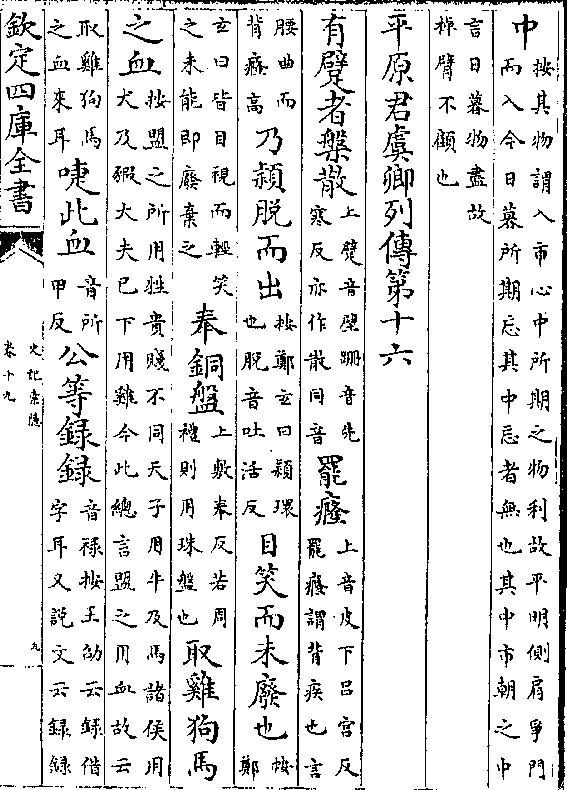 中按其物謂入市心中所期之物利故平明側肩爭門而入今日暮所期忘其中忘者無也其中市朝之中
言日暮物盡故掉臂不顧也
平原君虞卿列傳第十六
有躄者槃散上躄音壁跚音先寒反亦作散同音罷癃上音皮下呂宮反罷癃謂背疾也言
腰曲而背癃高乃穎脫而出按鄭玄曰穎環也脫音吐活反目笑而未廢也按鄭
玄曰皆目視而輕笑之未能即廢棄之奉銅盤上敷奉反若周禮則用珠盤也取雞狗馬
之血按盟之所用牲貴賤不同天子用牛及馬諸侯用犬及豭大夫已下用雞今此總言盟之用血故云
取雞狗馬之血來耳唼此血音所甲反公等錄錄音祿按王劭云錄借字耳又說文云錄錄
欽定四庫全書
史記索隱
卷十九
九